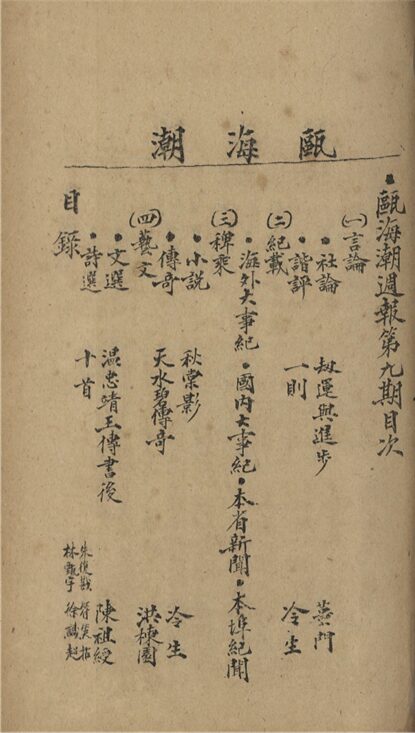 甌海潮
•甌海潮週報第九期目次
(一)言論
•社論 刼運與進步 門
•諧評 一則 冷生
(二)紀載
•海外大事紀•國內大事紀•本省新聞•本埠紀聞
(三)稗乘
•小説 秋棠影 冷生
•傳奇 天水碧傳奇 洪棟園
(四)藝文
•文選 温忠靖王傳書後 陳祖綬
•詩選 十首 朱復戡 符
林 徐
目錄